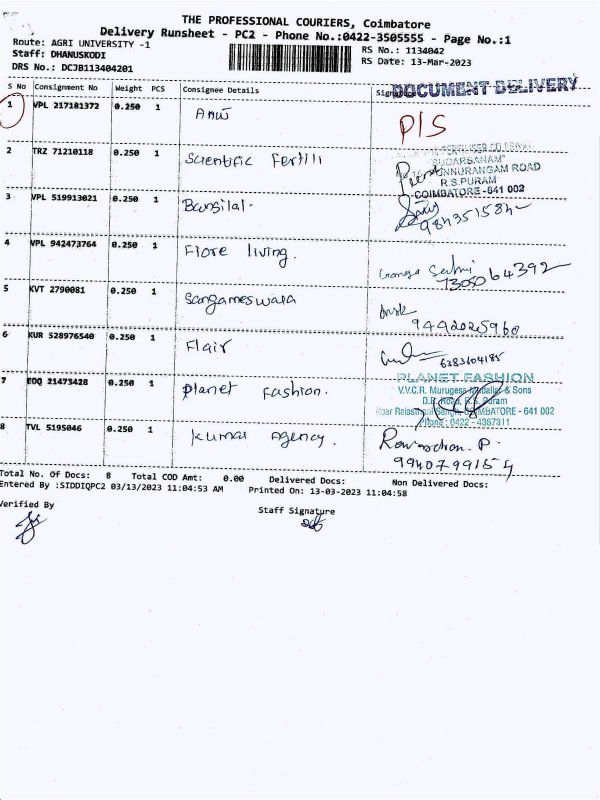 THE PROFESSIONAL COURIERS, Coimbatore
Delivery Runsheet - PC2 - Phone No.:0422-3505555 - Page No.:1
Route: AGRI UNIVERSITY -1
RS No.: 1134042
Staff: DHANUSKODI
RS Date: 13-Mar-2023
DRS No.: DCJB113404201
DOCUMENT DELIVERY
S No Consignment No Weight PCS Consignee Details
1 VPL 217181372 0.250 1 Anu P/S
2 TRZ 71210118 0.250 1 Scientific Fertili
"SUDARSANAM"
PONNURANGAM ROAD
R.S.PURAM
COIMBATORE - 641 002
3 VPL 519913021 0.250 1 Bansilal.
4 VPL 942473764 0.250 1 Fiore living.
7305064392
5 KVT 2790081 0.250 1 Sangameswara
9442025960
6 KUR 528976540 0.250 1 Flair
6383604185
7 EOQ 21473428 0.250 1 planet Fashion.
PLANET FASHION
V.V.C.R. Murugesa Mudaliar & Sons
D.B. Road, R.S. Puram
COIMBATORE - 641 002
Phone : 0422 - 4367311
8 TVL 5195046 0.250 1 kumar Agency.
9940799154
Total No. Of Docs: 8 Total COD Amt: 0.00 Delivered Docs: Non Delivered Docs:
Entered By :SIDDIQPC2 03/13/2023 11:04:53 AM Printed On: 13-03-2023 11:04:58
Verified By
Staff Signature